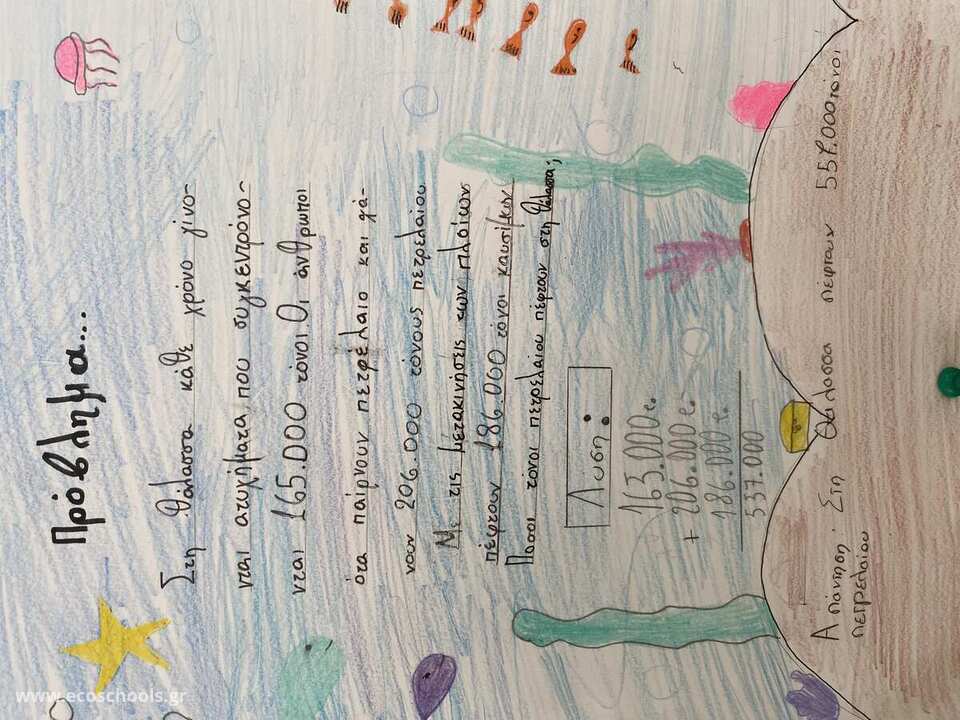 Πρόβλημα...
Στη θάλασσα κάθε χρόνο γίνο-
νται ατυχήματα που συγκεντρόνο-
νται 165.000 τόνοι. Οι άνθρωποι
ότα παίρνουν πετρέλαιο και χά-
νουν 206.000 τόνους πετρελαίου
Με τις μετακινήσεις των πλοίων
πέφτουν 186.000 τόνοι καυσίμων
Πόσοι τόνοι πετρελαίου πέφτουν στη θάλασσα;
Λυση:
165.000 τ.
+ 206.000 τ.
186.000 τ.
557.000
Απάντηση: Στη θάλασσα πέφτουν 557.000 τόνοι
πετρελαίου
www.ecoschools.gr